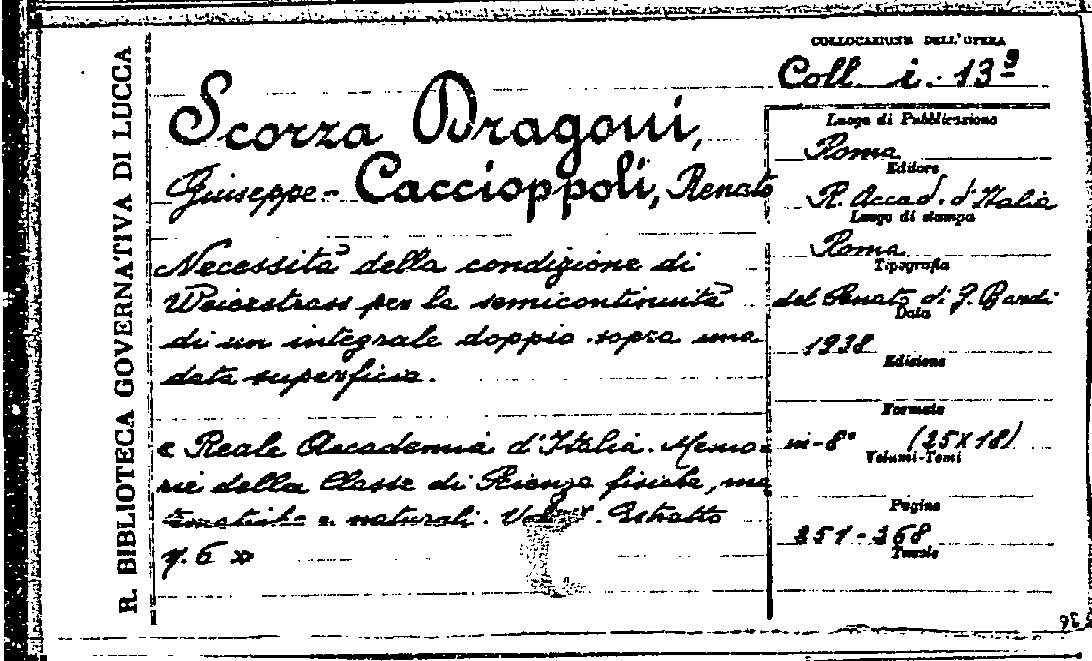 R. BIBLIOTECA GOVERNATIVA DI LUCCA
COLLOCAZIONE DELL'OPERA
Coll. i. 13⁹
Scorza Dragoni,
Giuseppe - Caccioppoli, Renato
Necessità della condizione di
Weierstrass per la semicontinuità
di un integrale doppio sopra una
data superficie.
« Reale Accademia d'Italia. Memo=
rie della Classe di Scienze fisiche, ma
tematiche e naturali. Vol. Estratto
n. 6 »
Luogo di Pubblicazione
Roma
Editore
R. Accad. d'Italia
Luogo di stampa
Roma
Tipografia
del Senato di G. Bardi
Data
1938
Edizione
Formato
in-8° (25X18)
Volumi-Tomi
Pagine
251-268
Tavole